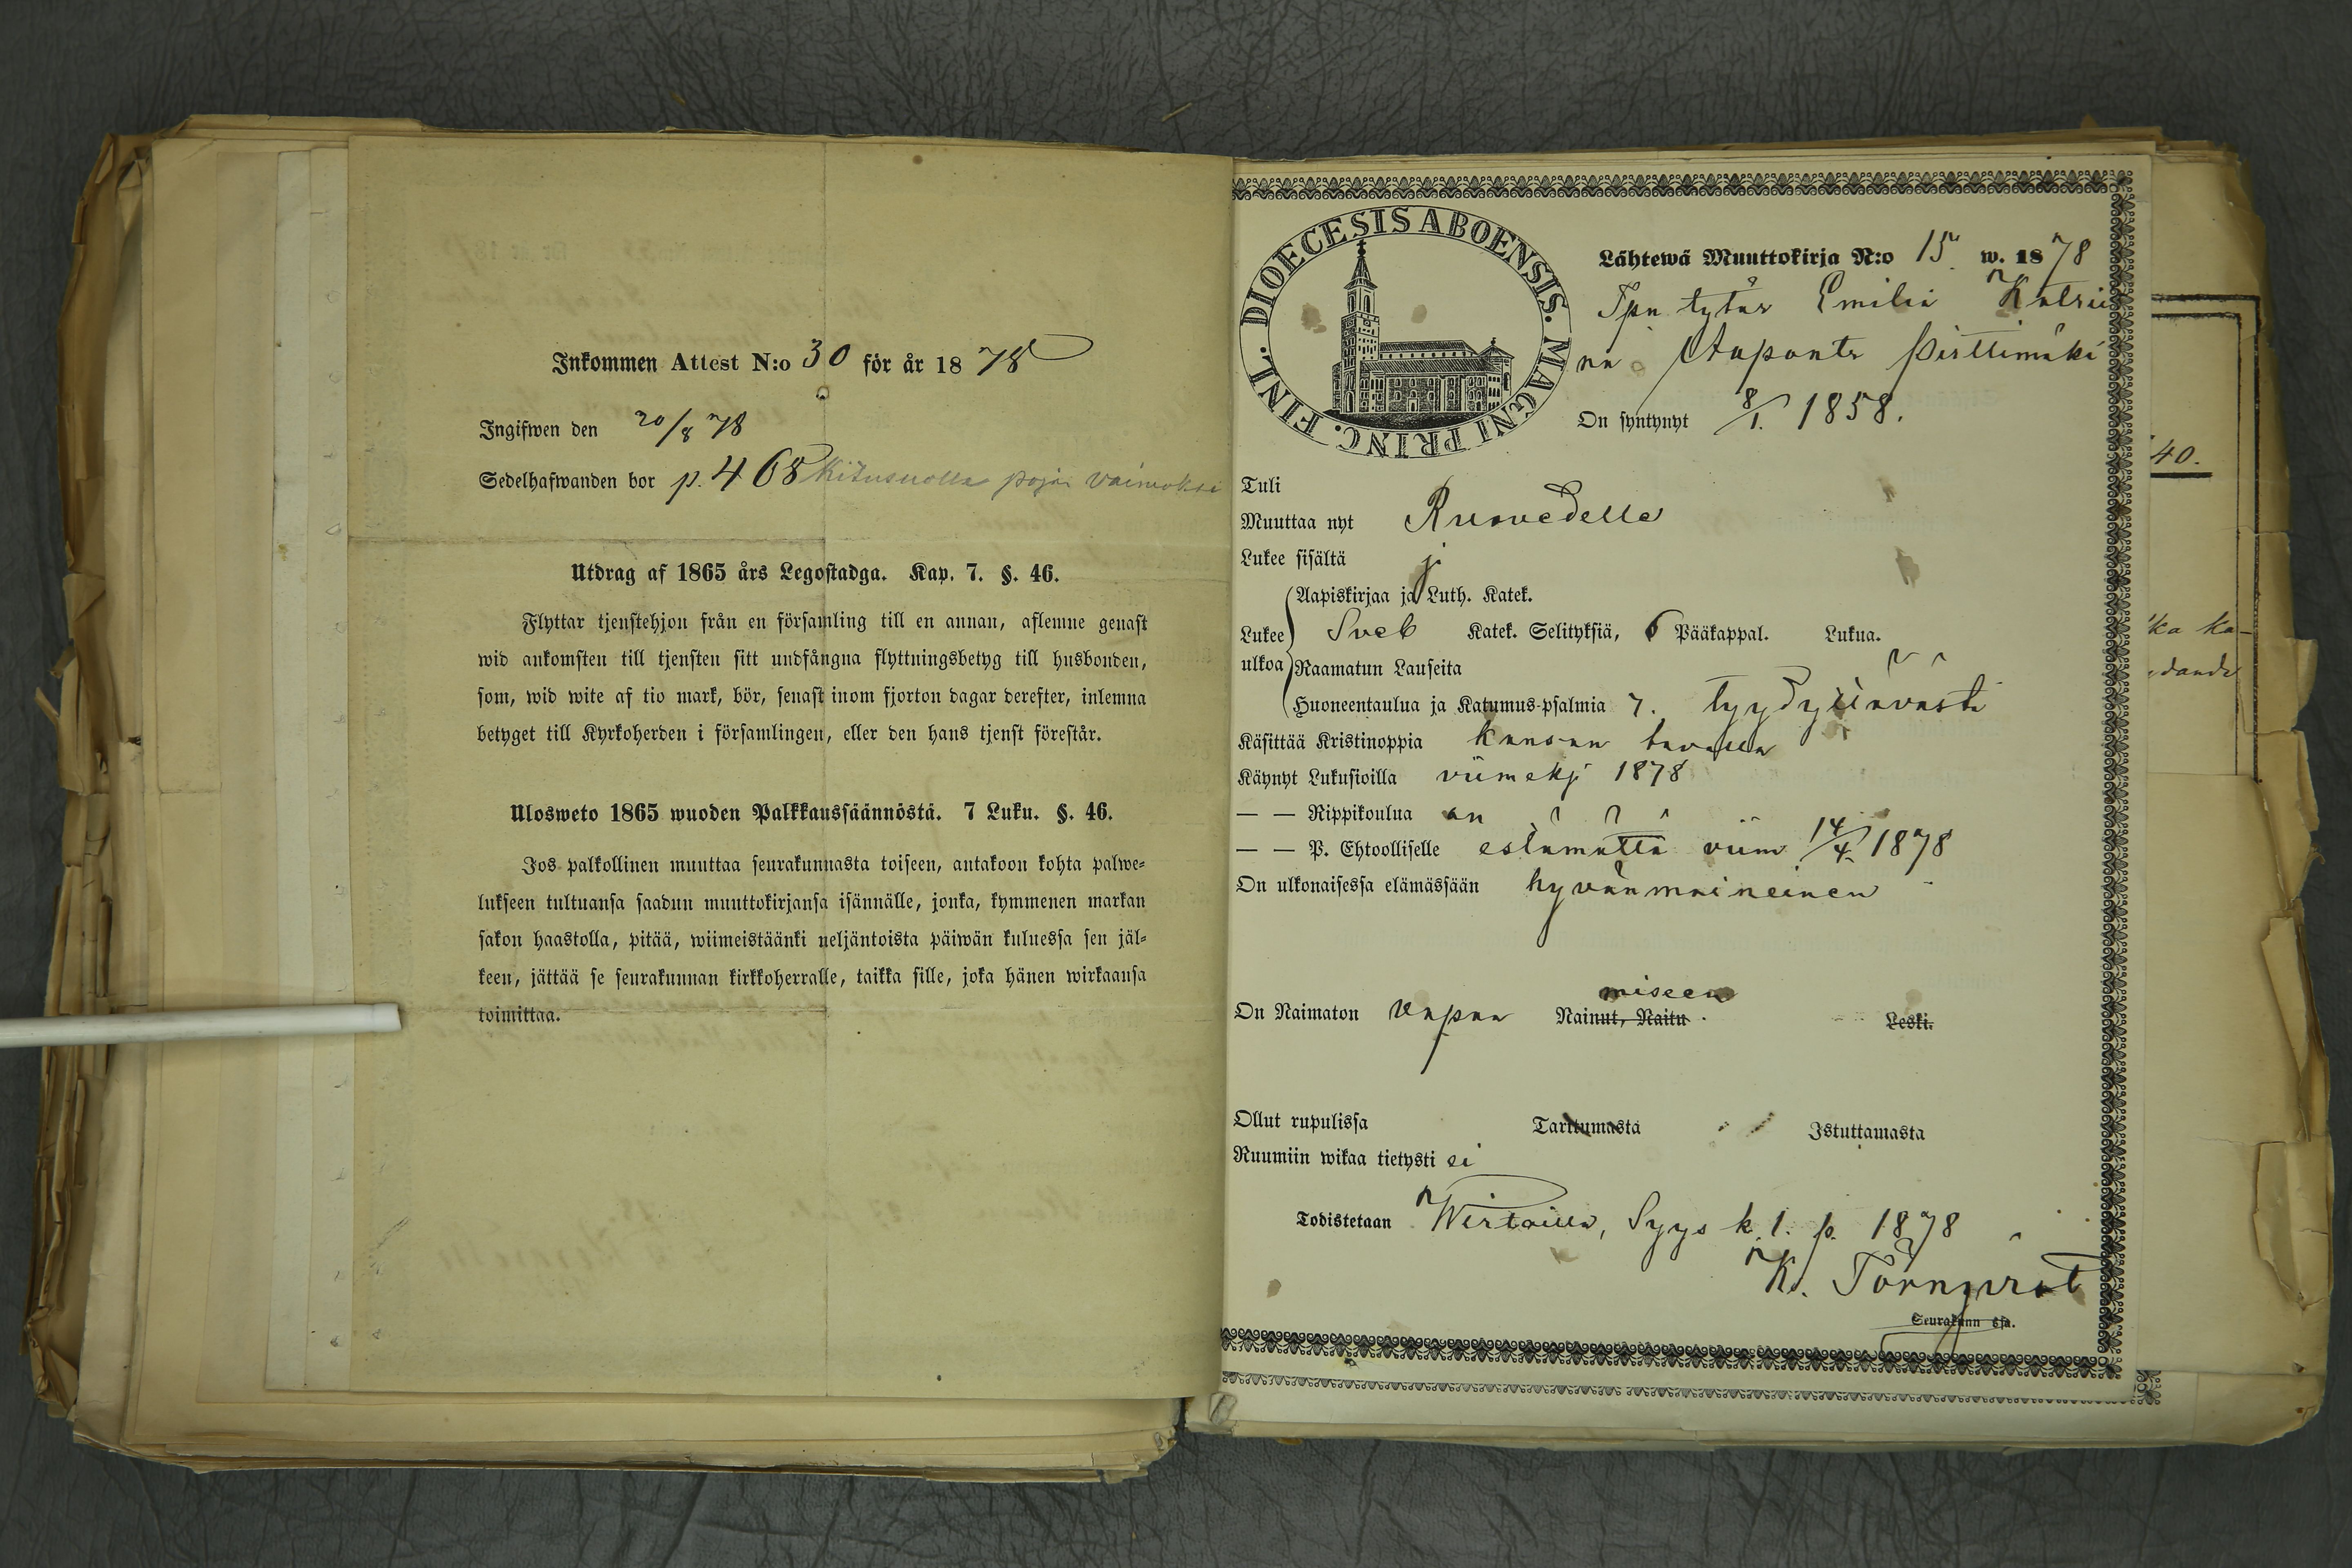 Inkommen Attest N:o 30 för år 1878
Ingifwen den 20/8 78
Sedelhafwanden bor p. 468 Kitusuolla pojan vaimoksi
Utdrag af 1865 års Legostadga. Kap. 7. §. 46.
Flyttar tjenstehjon från en församling till en annan, aflemne genast
wid ankomsten till tjensten sitt undfångna flyttningsbetyg till husbonden,
som, wid wite af tio mark, bör, senast inom fjorton dagar derefter, inlemna
betyget till Kyrkoherden i församlingen, eller den hans tjenst förestår.
Ulosweto 1865 wuoden Palkkaussäännöstä. 7 Luku. §. 46.
Jos palkollinen muuttaa seurakunnasta toiseen, antakoon kohta palwe-
lukseen tultuansa saadun muuttokirjansa isännälle, jonka, kymmenen markan
sakon haastolla, pitää, wiimeistäänki neljäntoista päiwän kuluessa sen jäl-
keen, jättää se seurakunnan kirkkoherralle, taikka sille, joka hänen wirkaansa
toimittaa.
DIOECESIS ABOENSIS. MAGNI PRINC. FINL.
Lähtewä Muuttokirja N:o 15 w. 1878
Tpn tytär Emilia Katrii
na Aapontr Pirttimäki
On syntynyt 8/1. 1858.
Tuli
Muuttaa nyt Ruovedelle
Lukee sisältä j
Aapiskirjaa ja Luth. Katek.
Lukee ulkoa Sveb Katek. Selityksiä, 6 Pääkappal. Lukua.
Raamatun Lauseita
Huoneentaulua ja Katumus-psalmia 7. tyydyttävästi
Käsittää Kristinoppia kansan tavalla
Käynyt Lukusioilla viimeksi 1878
— — Rippikoulua on
— — P. Ehtoolliselle estämättä viim 14/4. 1878
On ulkonaisessa elämässään hyvänmaineinen
miseen
On Naimaton vapaa Nainut, Naitu Leski.
Ollut rupulissa Tarttumasta Istuttamasta
Ruumiin wikaa tietysti ei
Todistetaan Wirtoilla, Syys k. 1. p. 1878
K. Törnqvist
Seurakunnassa.
40.